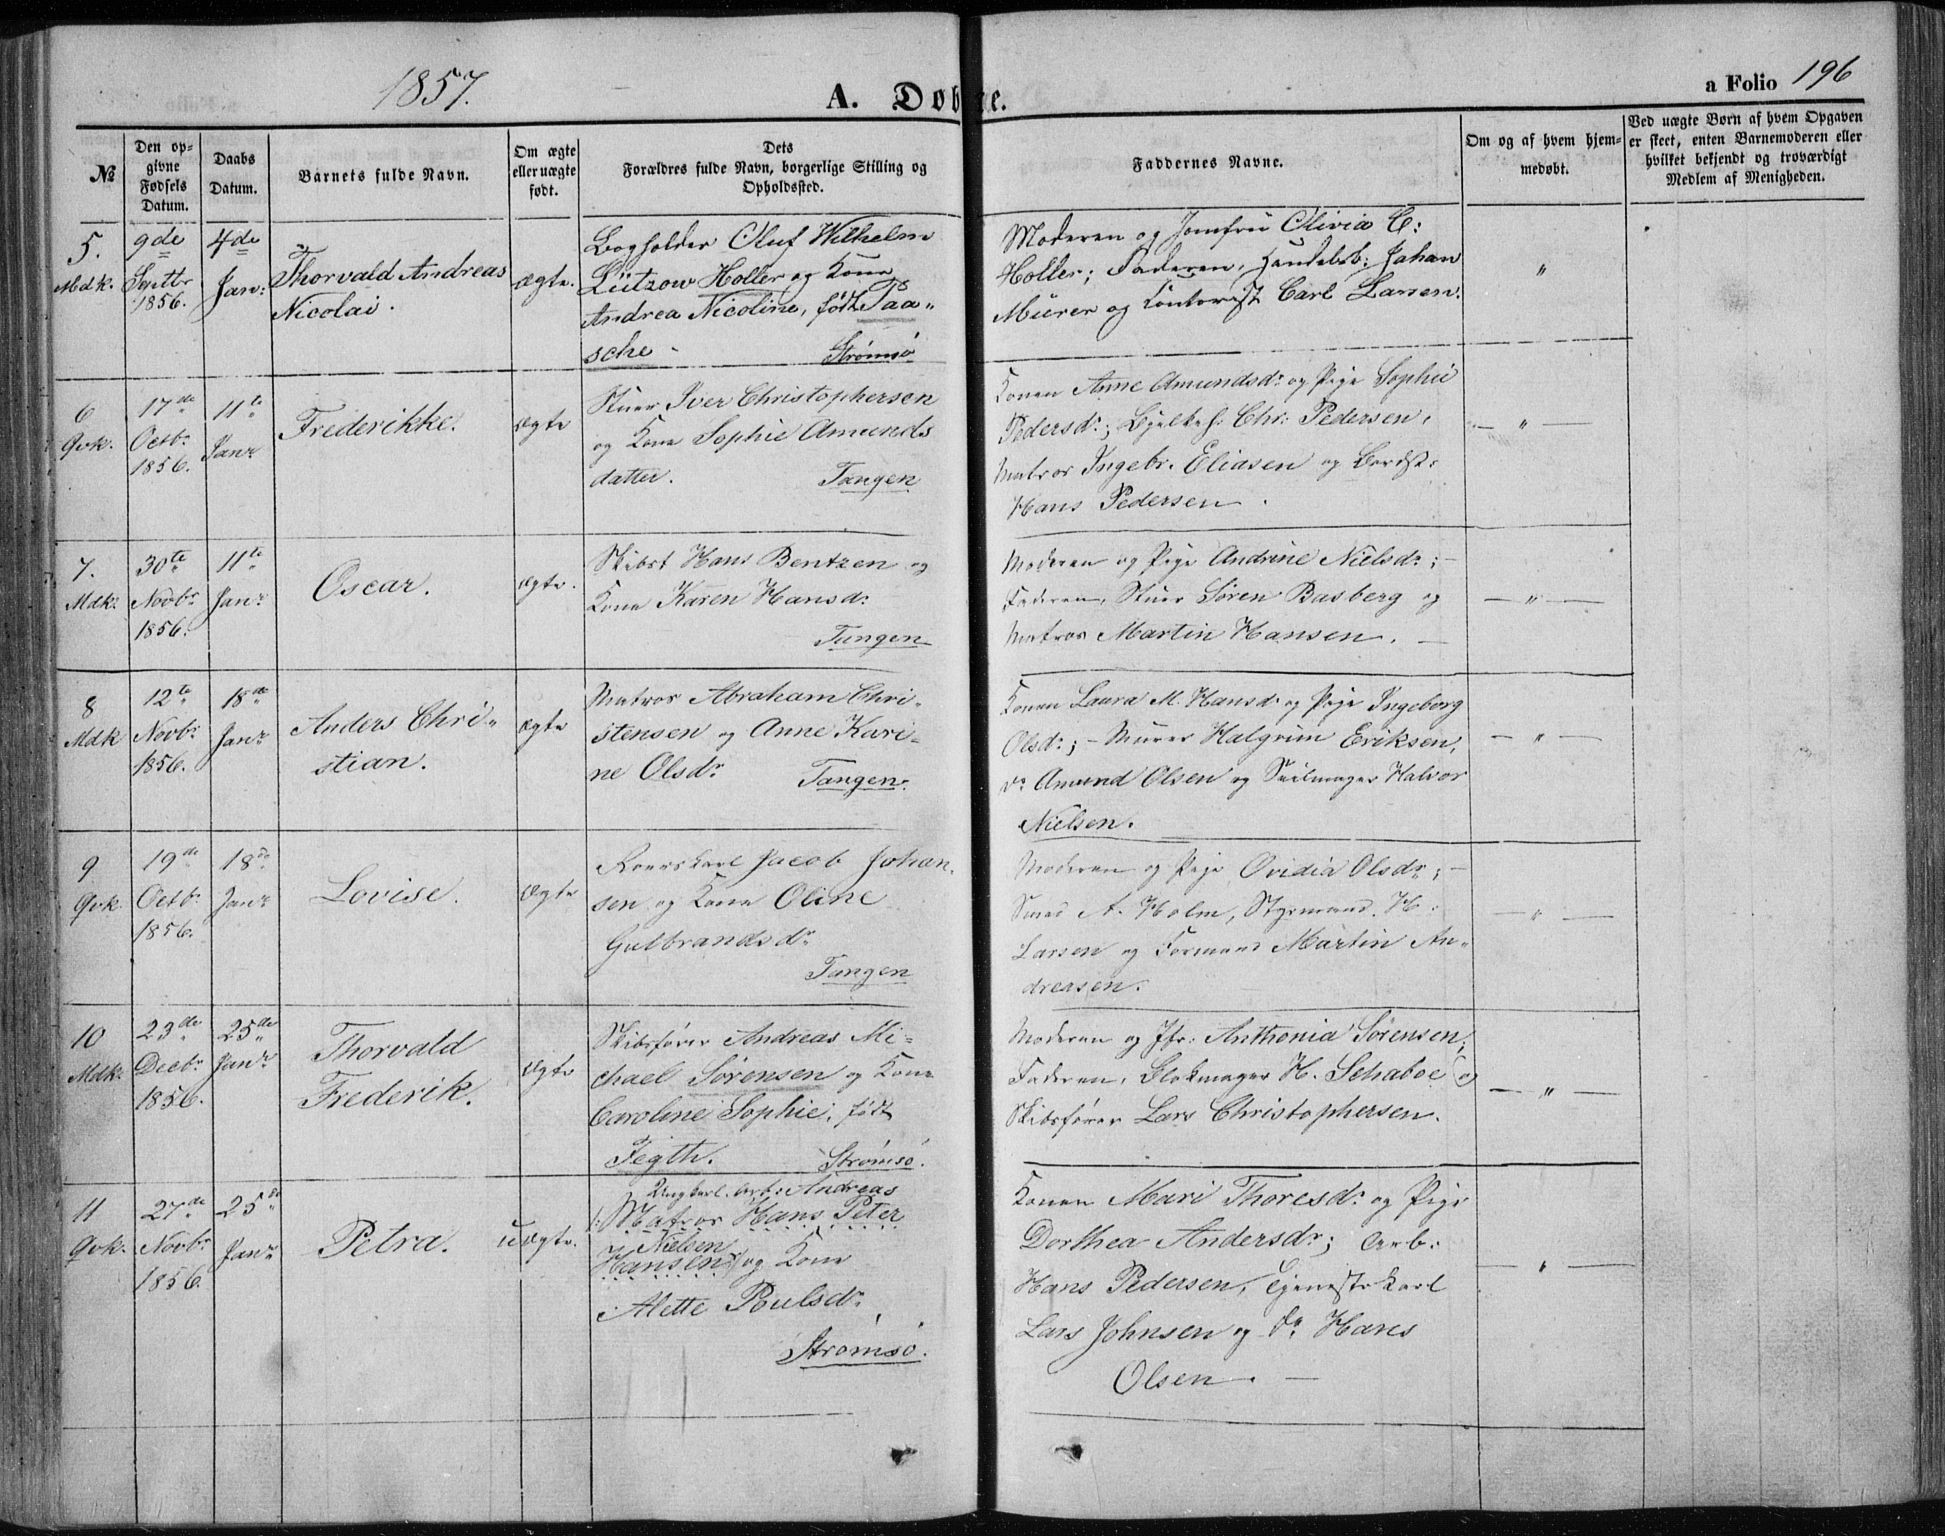 1857.
A. Døbte.
a Folio 196
№
Den op-
givne
Fødsels
Datum.
Daabs
Datum.
Barnets fulde Navn.
Om ægte
eller uægte
født.
Dets
Forældres fulde Navn, borgerlige Stilling og
Opholdssted.
Faddernes Navne.
Om og af hvem hjem-
medøbt.
Ved uægte Børn af hvem Opgaven
er skeet, enten Barnemoderen eller
hvilket bekjendt og troværdigt
Medlem af Menigheden.
5.
Mdk.
9de
Septbr
1856.
4de
Jan:
Thorvald Andreas
Nicolai.
ægte.
Bogholder Oluf Wilhelm
Lützow Holler og Kone
Andrea Nicoline, født Paa-
sche -
Strømsø
Moderen og Jomfru Olivia C:
Holler; Faderen, Handelsb: Johan
Mürer og Kontorist Carl Larsen.
"
6
Qvk.
17de
Octbr
1856.
11te
Janr
Frederikke.
ægte
Stuer Iver Christophersen
og Kone Sophie Amunds
datter.
Tangen
Konen Anne Amundsdr og Pige Sophie
Pedersdr; Bjelkeh: Chr: Pedersen,
Matros Ingebr. Eliasen og Bordst:
Hans Pedersen.
— " —
7.
Mdk.
30te
Novbr
1856.
11te
Janr
Oscar.
ægte.
Skibst Hans Bentzen og
Kone Karen Hansdr
Tangen
Moderen og Pige Andrine Nielsdr; -
Faderen, Stuer Søren Basberg og
Matros Martin Hansen. -
— " —
8
Mdk
12te
Novbr
1856.
18de
Janr
Anders Chri-
stian.
ægte
Matros Abraham Chri-
stensen og Anne Kari-
ne Olsdr
Tangen.
Konen Laura M. Hansdr og Pige Ingeborg
Olsdr; - Murer Halgrim Eriksen,
do Amund Olsen og Seilmager Halvor
Nielsen.
— " —
9
Qvk.
19de
Octbr
1856.
18de
Janr
Lovise.
ægte
Roerskarl Jacob Johan-
sen og Kone Oline
Gulbrandsdr
Tangen
Moderen og Pige Ovidia Olsdr; -
Smed A. Holm, Styrmand H.
Larsen og Formand Martin An-
dreasen.
— " —
10
Mdk.
23de
Decbr
1856.
25de
Janr
Thorvald
Frederik.
ægte
Skibsfører Andreas Mi-
chael Sørensen og Kone
Caroline Sophie, født
Fegth.
Strømsø.
Moderen og Jfr: Anthonia Sörensen;
Faderen, Blokmager H. Schaboe og
Skibsfører Lars Christophersen.
— " —
11
Qvk.
27de
Novbr
1856.
25de
Janr
Petra.
uægte.
Ungkarl. Arb: Andreas
Matros Hans Peter
Nielsen
Hansen og Kone
Alette Poulsdr.
Strømsø.
Konen Mari Thoresdr og Pige
Dorthea Andersdr; Arb:
Hans Pedersen, Tjenestekarl
Lars Johnsen og do Hans
Olsen. -
— " —